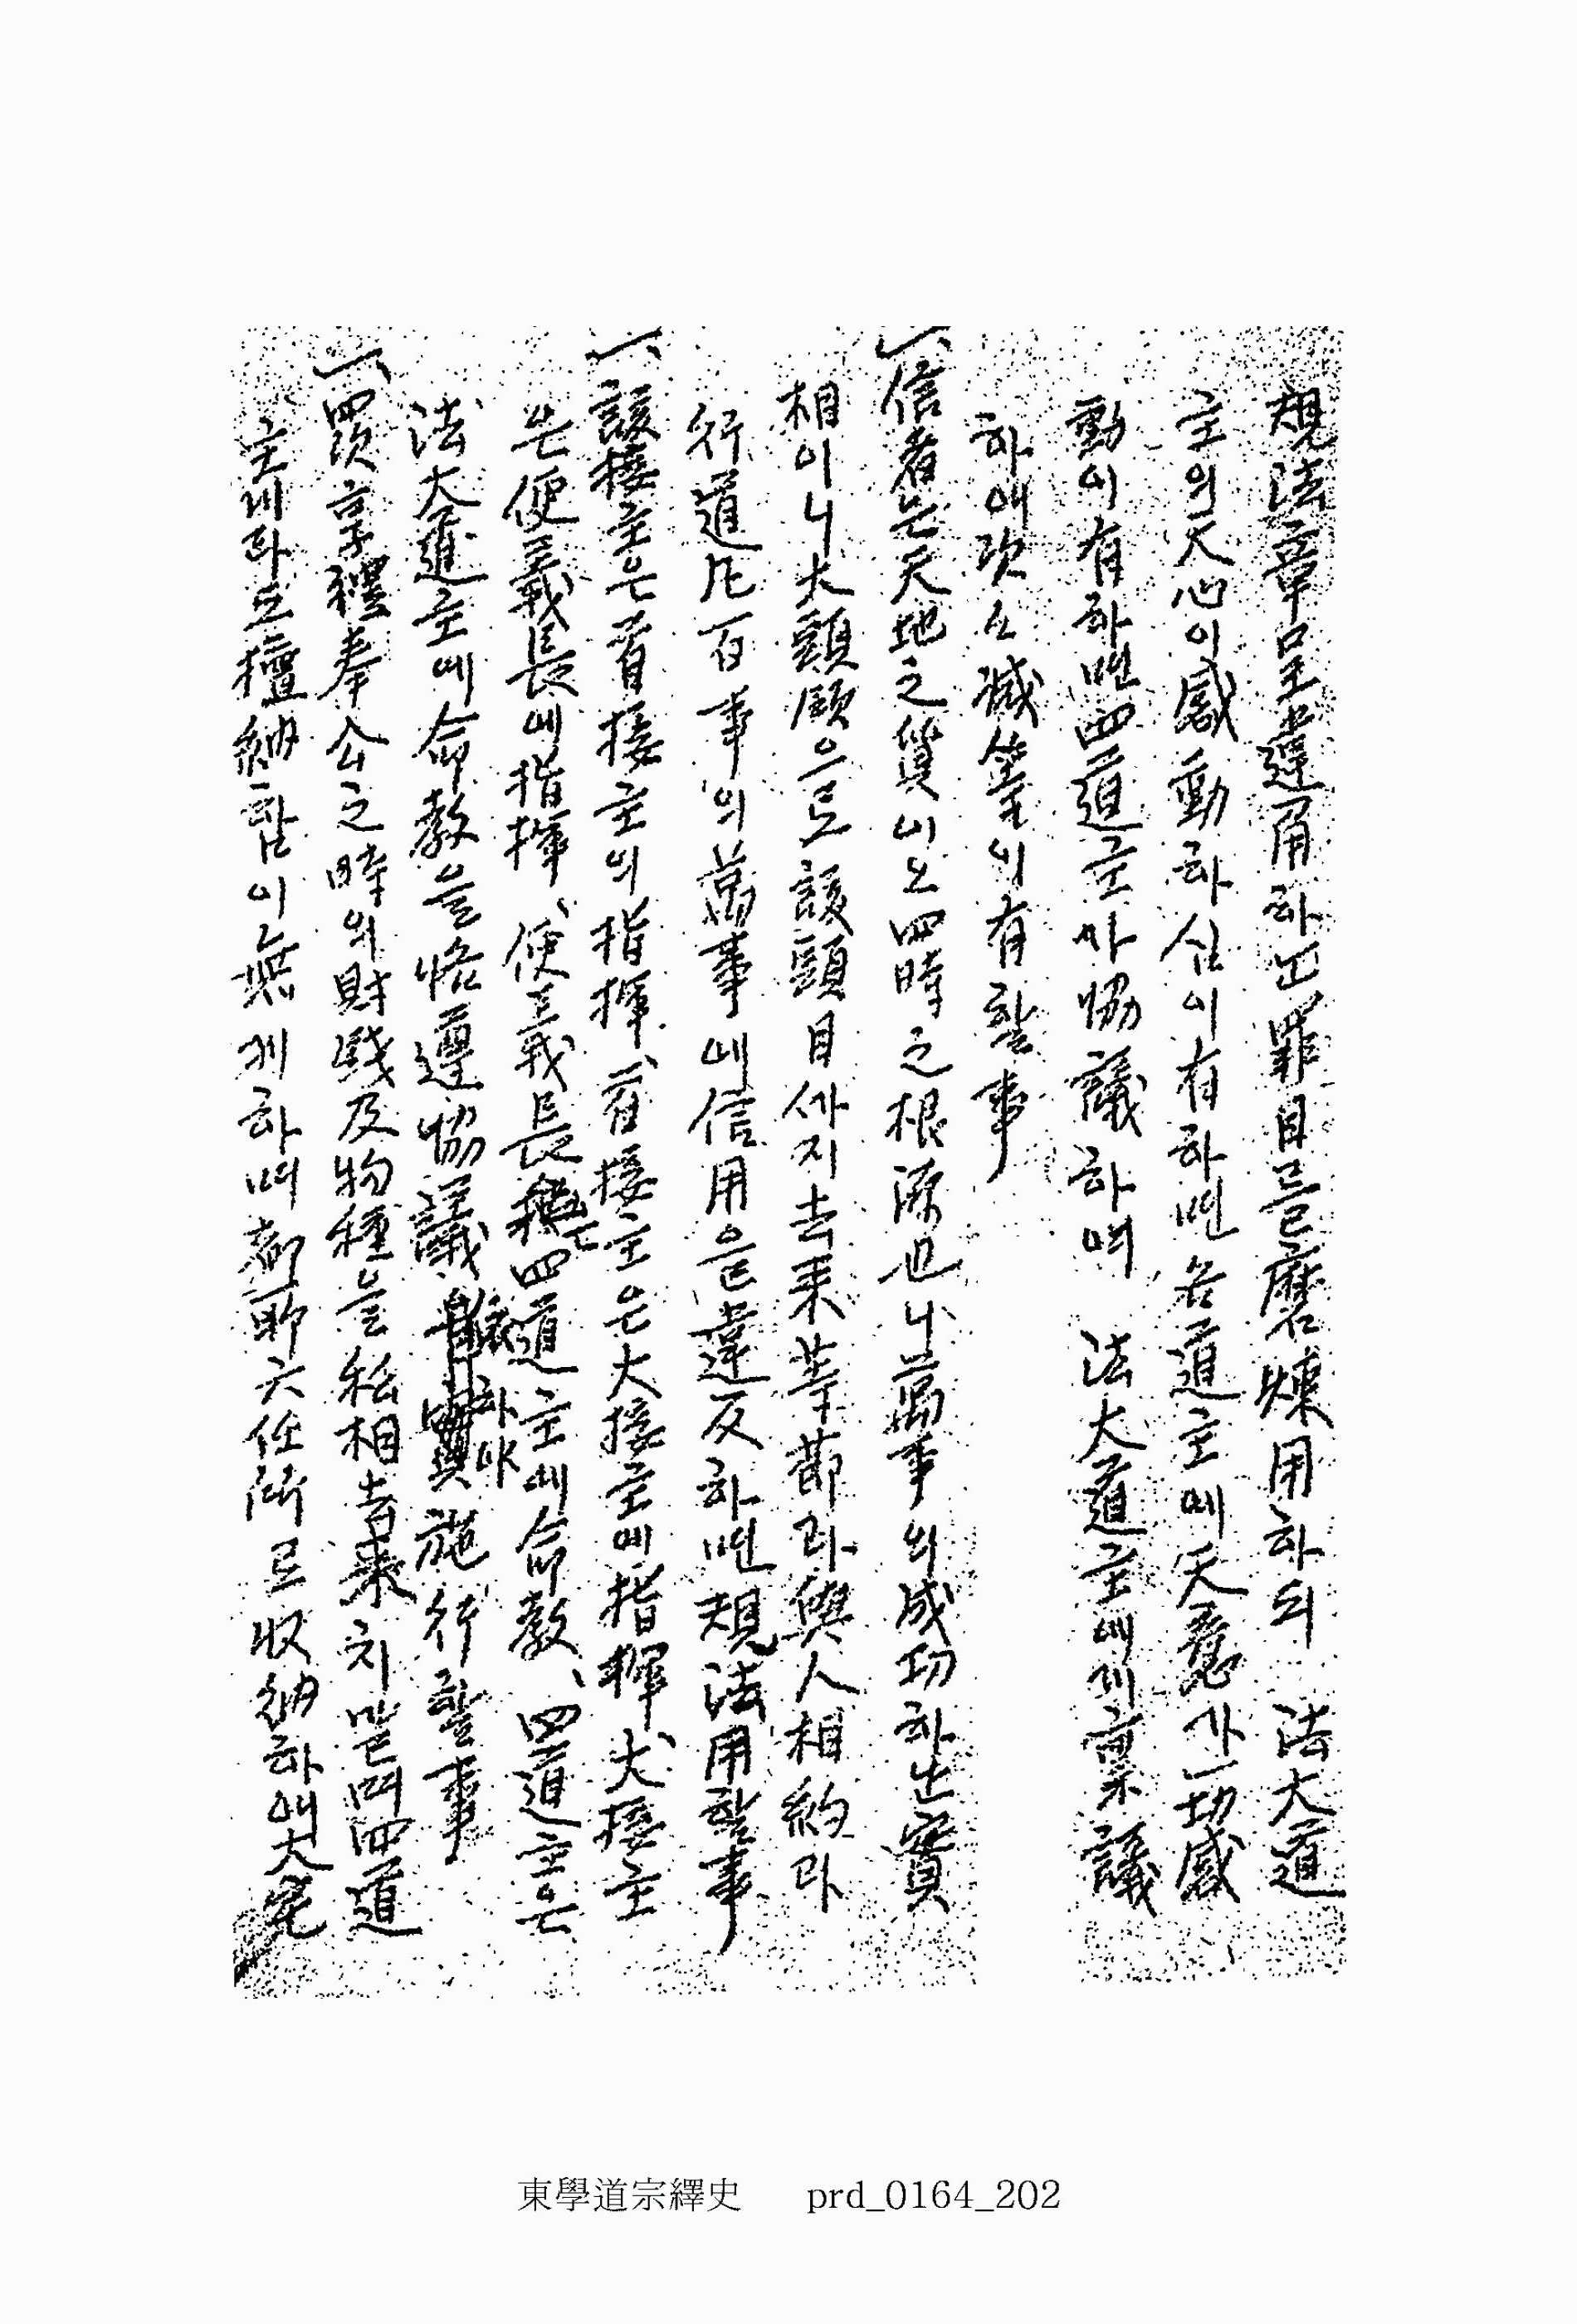 規法章呈違用하고罪目을磨煉用하되 法大道
主의天心이感動하심이有하면各道主에天意가一切感
動이有하면四道主가協議하여 法大道主에게稟議
하애次々減等이有할事
一、信者는天地之質이오四時之根源也니萬事의成功하난實
相이니大頭領으로該頭目까지去来等節과與人相約과
行道凡百事의萬事에信用을違反하면規法用할事
一、該接主은首接主의指揮、首接主은大接主에指揮、大接主
은便義長에指揮、便義長은四道主에命教、四道主은
法大道主에命教을恪遵協議하야施行할事
一、四次享禮奉公之時의財錢及物種을私相去来치말門四道
主에라도擅納함이無게하며都所六任所로収納하애大宅
東學道宗繹史 prd_0164_202